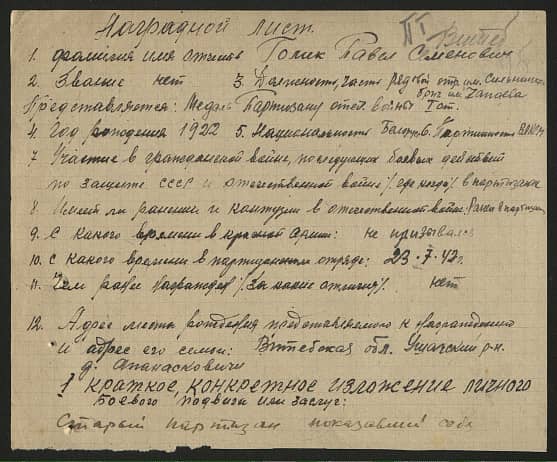 Наградной лист.
1. фамилия имя отчество Голик Павел Семенович
2. Звание нет 3. Должность, часть рядовой отр. им.
бриг. им. Чапаева
Представляется: Медаль Партизану отеч. войны I ст.
4. Год рождения 1922 5. Национальность Белорус 6. Партийность ВЛКСМ
7. Участие в гражданской войне, последующих боевых действий
по защите СССР и отечественной войне /. где, когда /. в партизанах
8. Имеет ли ранения и контузии в отечественной войне:
9. С какого времени в красной армии: не призывался
10. С какого времени в партизанском отряде: 23.7.42 г.
11. Чем ранее награжден /. За какие отличия /. нет
12. Адрес места рождения представляемого к награждению
и адрес его семьи: Витебская обл. Ушачский р-н.
д. Апанасковичи
I Краткое, конкретное изложение личного
боевого подвига или заслуг:
Старый партизан показавший себя